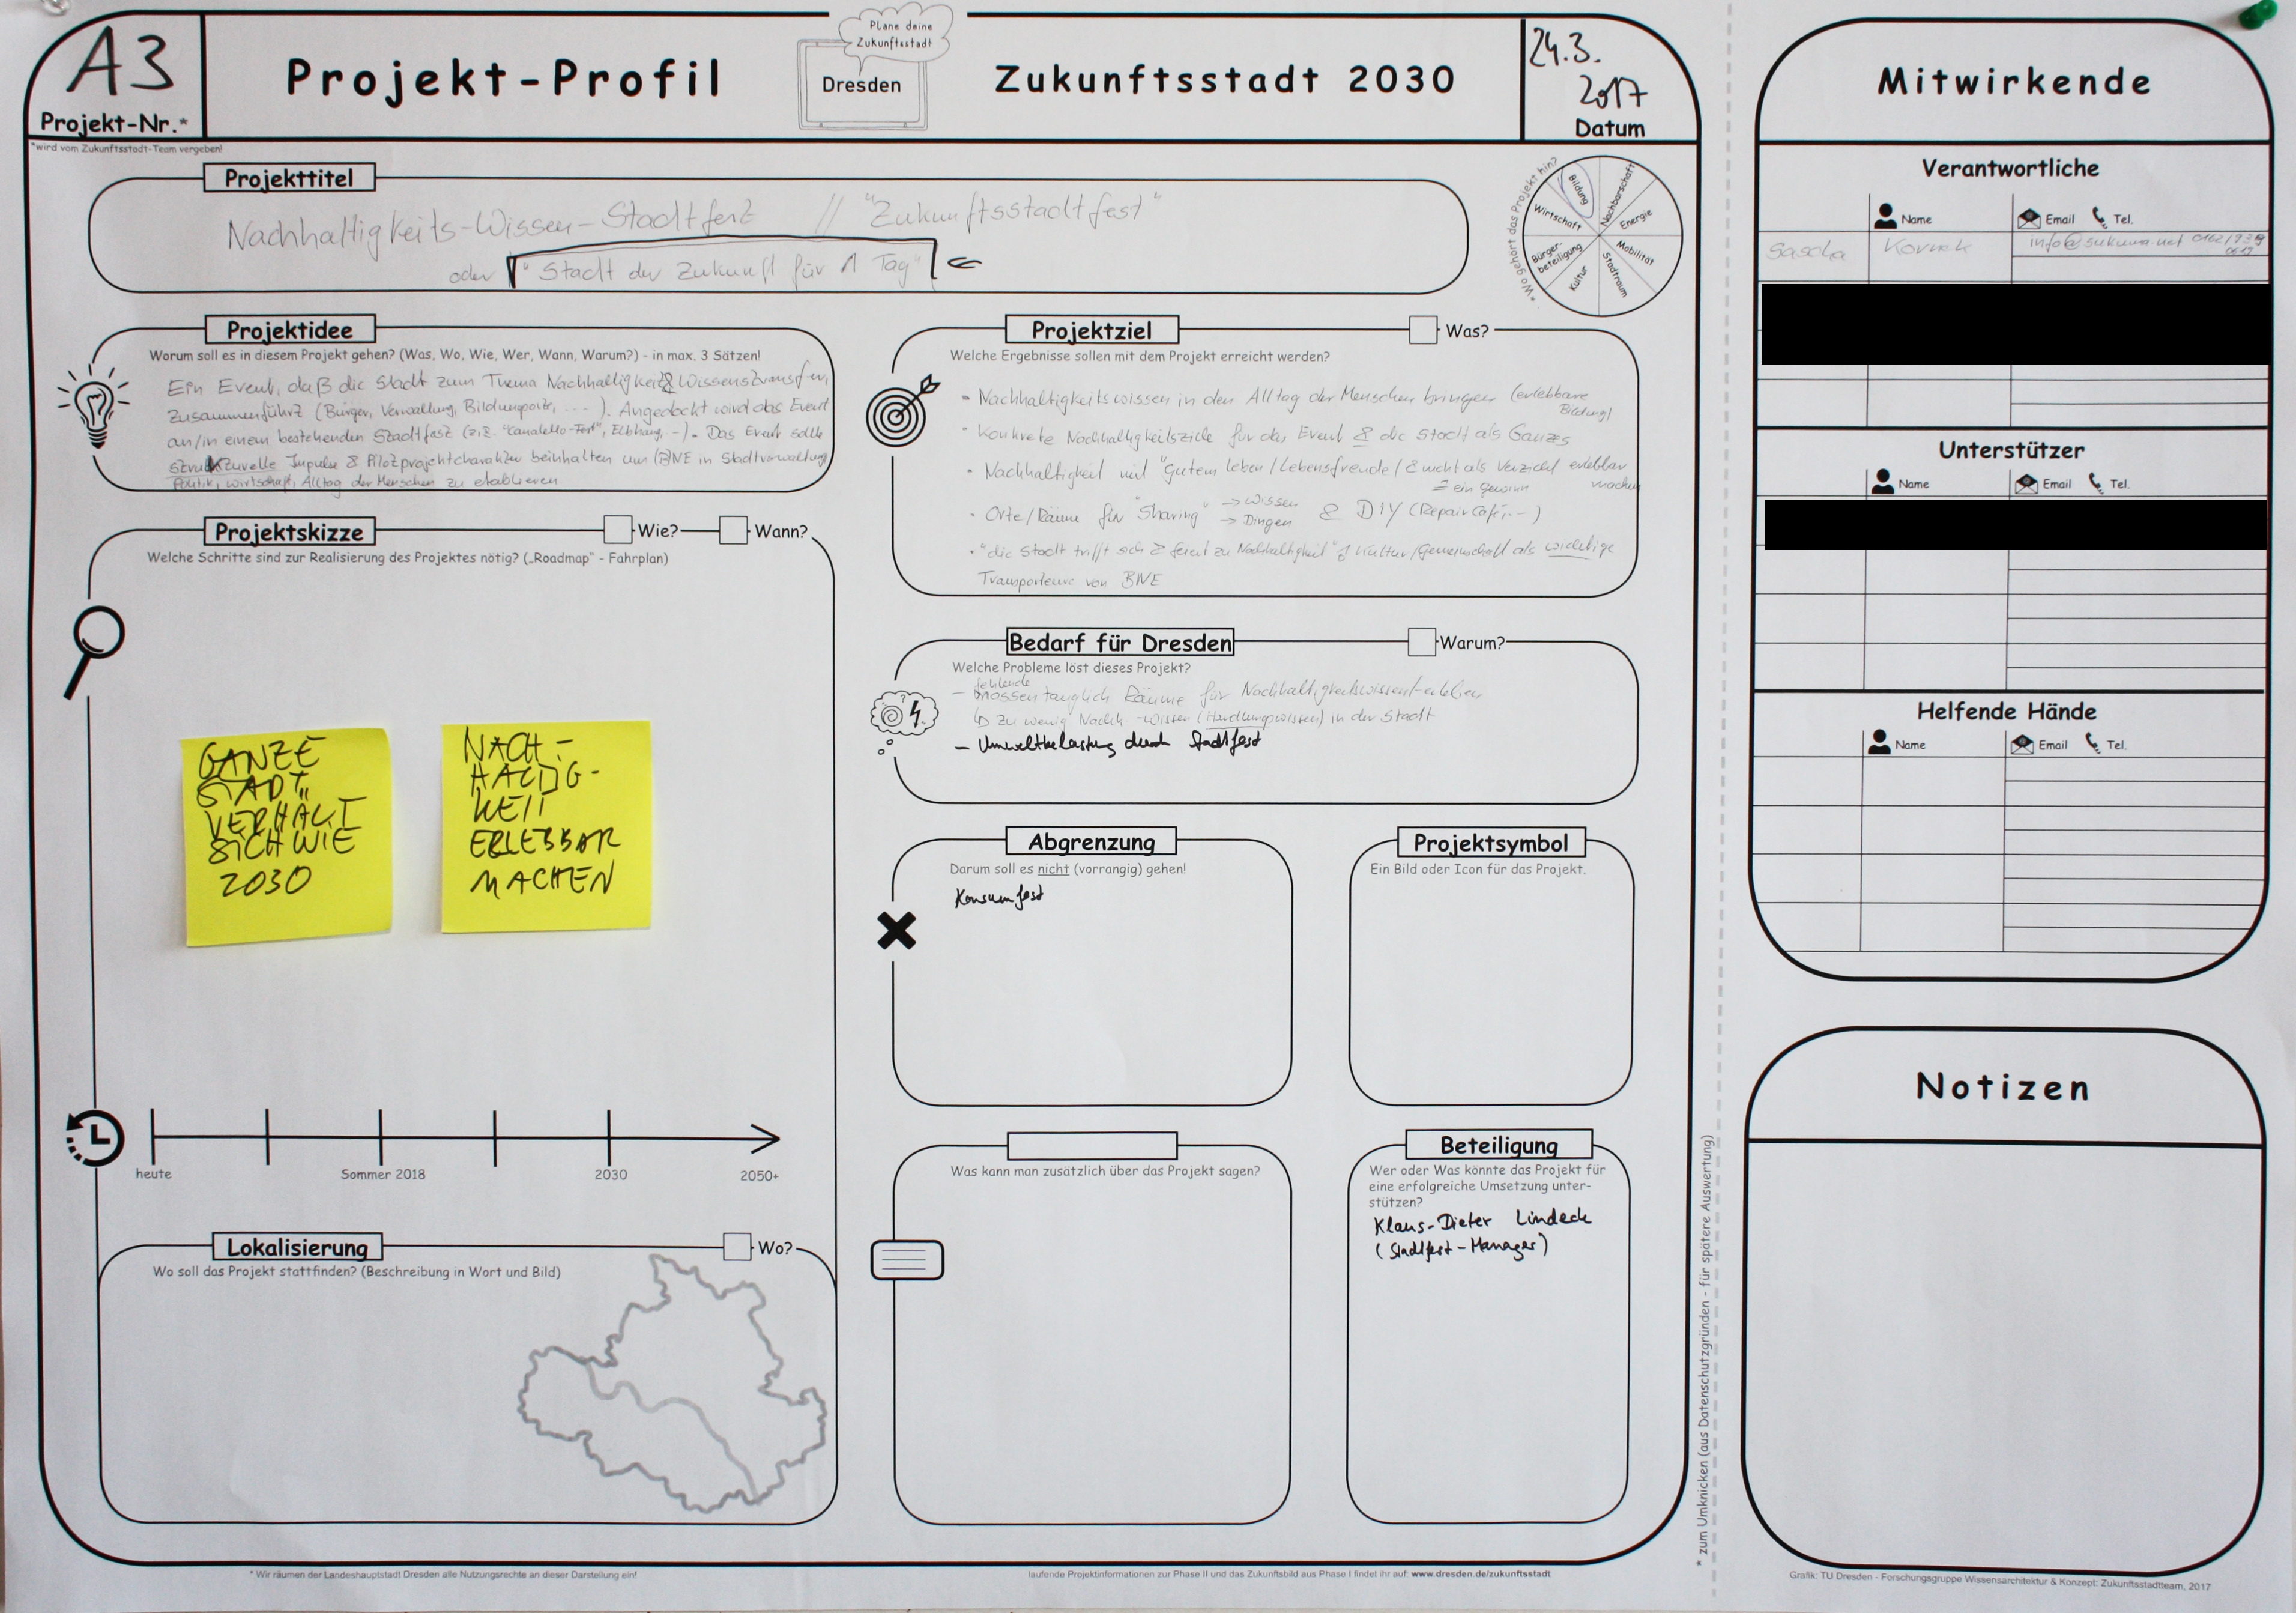 A3
Projekt-Nr.*
*wird vom Zukunftsstadt-Team vergeben!
Projekt-Profil
Plane deine
Zukunftsstadt
Dresden
Zukunftsstadt 2030
24.3.
2017
Datum
Projekttitel
Nachhaltigkeits-Wissen-Stadtfest // "Zukunftsstadtfest"
oder "Stadt der Zukunft für 1 Tag"
*Wo gehört das Projekt hin?
Bildung
Nachbarschaft
Energie
Mobilität
Stadtraum
Kultur
Bürger-
beteiligung
Wirtschaft
Projektidee
Worum soll es in diesem Projekt gehen? (Was, Wo, Wie, Wer, Wann, Warum?) - in max. 3 Sätzen!
Ein Event, daß die Stadt zum Thema Nachhaltigkeit & Wissenstransfer,
zusammenführt (Bürger, Verwaltung, Bildungsorte, ...). Angedockt wird das Event
an/in einem bestehenden Stadtfest (z.B. "Canaletto-Fest", Elbhang, ..). Das Event sollte
strukturelle Impulse & Pilotprojektcharakter beinhalten um (B)NE in Stadtverwaltung
Politik, Wirtschaft, Alltag der Menschen zu etablieren
Projektskizze
Wie?
Wann?
Welche Schritte sind zur Realisierung des Projektes nötig? („Roadmap" - Fahrplan)
GANZE
STADT
VERHÄLT
SICH WIE
2030
NACH-
HALTIG-
KEIT
ERLEBBAR
MACHEN
heute
Sommer 2018
2030
2050+
Lokalisierung
Wo?
Wo soll das Projekt stattfinden? (Beschreibung in Wort und Bild)
Projektziel
Was?
Welche Ergebnisse sollen mit dem Projekt erreicht werden?
• Nachhaltigkeitswissen in den Alltag der Menschen bringen (erlebbare
Bildung)
• Konkrete Nachhaltigkeitsziele für das Event & die Stadt als Ganzes
• Nachhaltigkeit mit "gutem Leben / Lebensfreude / & nicht als Verzicht erlebbar
= ein Gewinn machen
• Orte/Räume für "Sharing" → Wissen
→ Dingen & DIY (Repair Café, ..)
• "die Stadt trifft sich & feiert zu Nachhaltigkeit" Kultur/Gemeinschaft als wichtige
Transporteure von BNE
Bedarf für Dresden
Warum?
Welche Probleme löst dieses Projekt?
fehlende
– massentauglich Räume für Nachhaltigkeitswissen-erleben
↳ zu wenig Nachh.-wissen (Handlungswissen) in der Stadt
– Umweltbelastung durch Stadtfest
Abgrenzung
Darum soll es nicht (vorrangig) gehen!
Konsumfest
Projektsymbol
Ein Bild oder Icon für das Projekt.
Was kann man zusätzlich über das Projekt sagen?
Beteiligung
Wer oder Was könnte das Projekt für
eine erfolgreiche Umsetzung unter-
stützen?
Klaus-Dieter Lindeck
(Stadtfest-Manager)
* Wir räumen der Landeshauptstadt Dresden alle Nutzungsrechte an dieser Darstellung ein!
laufende Projektinformationen zur Phase II und das Zukunftsbild aus Phase I findet ihr auf: www.dresden.de/zukunftsstadt
* zum Umknicken (aus Datenschutzgründen - für spätere Auswertung)
Mitwirkende
Verantwortliche
Name Email Tel.
Sascha Kornek info@sukuma.net
Unterstützer
Name Email Tel.
Helfende Hände
Name Email Tel.
Notizen
Grafik: TU Dresden - Forschungsgruppe Wissensarchitektur & Konzept: Zukunftsstadtteam, 2017